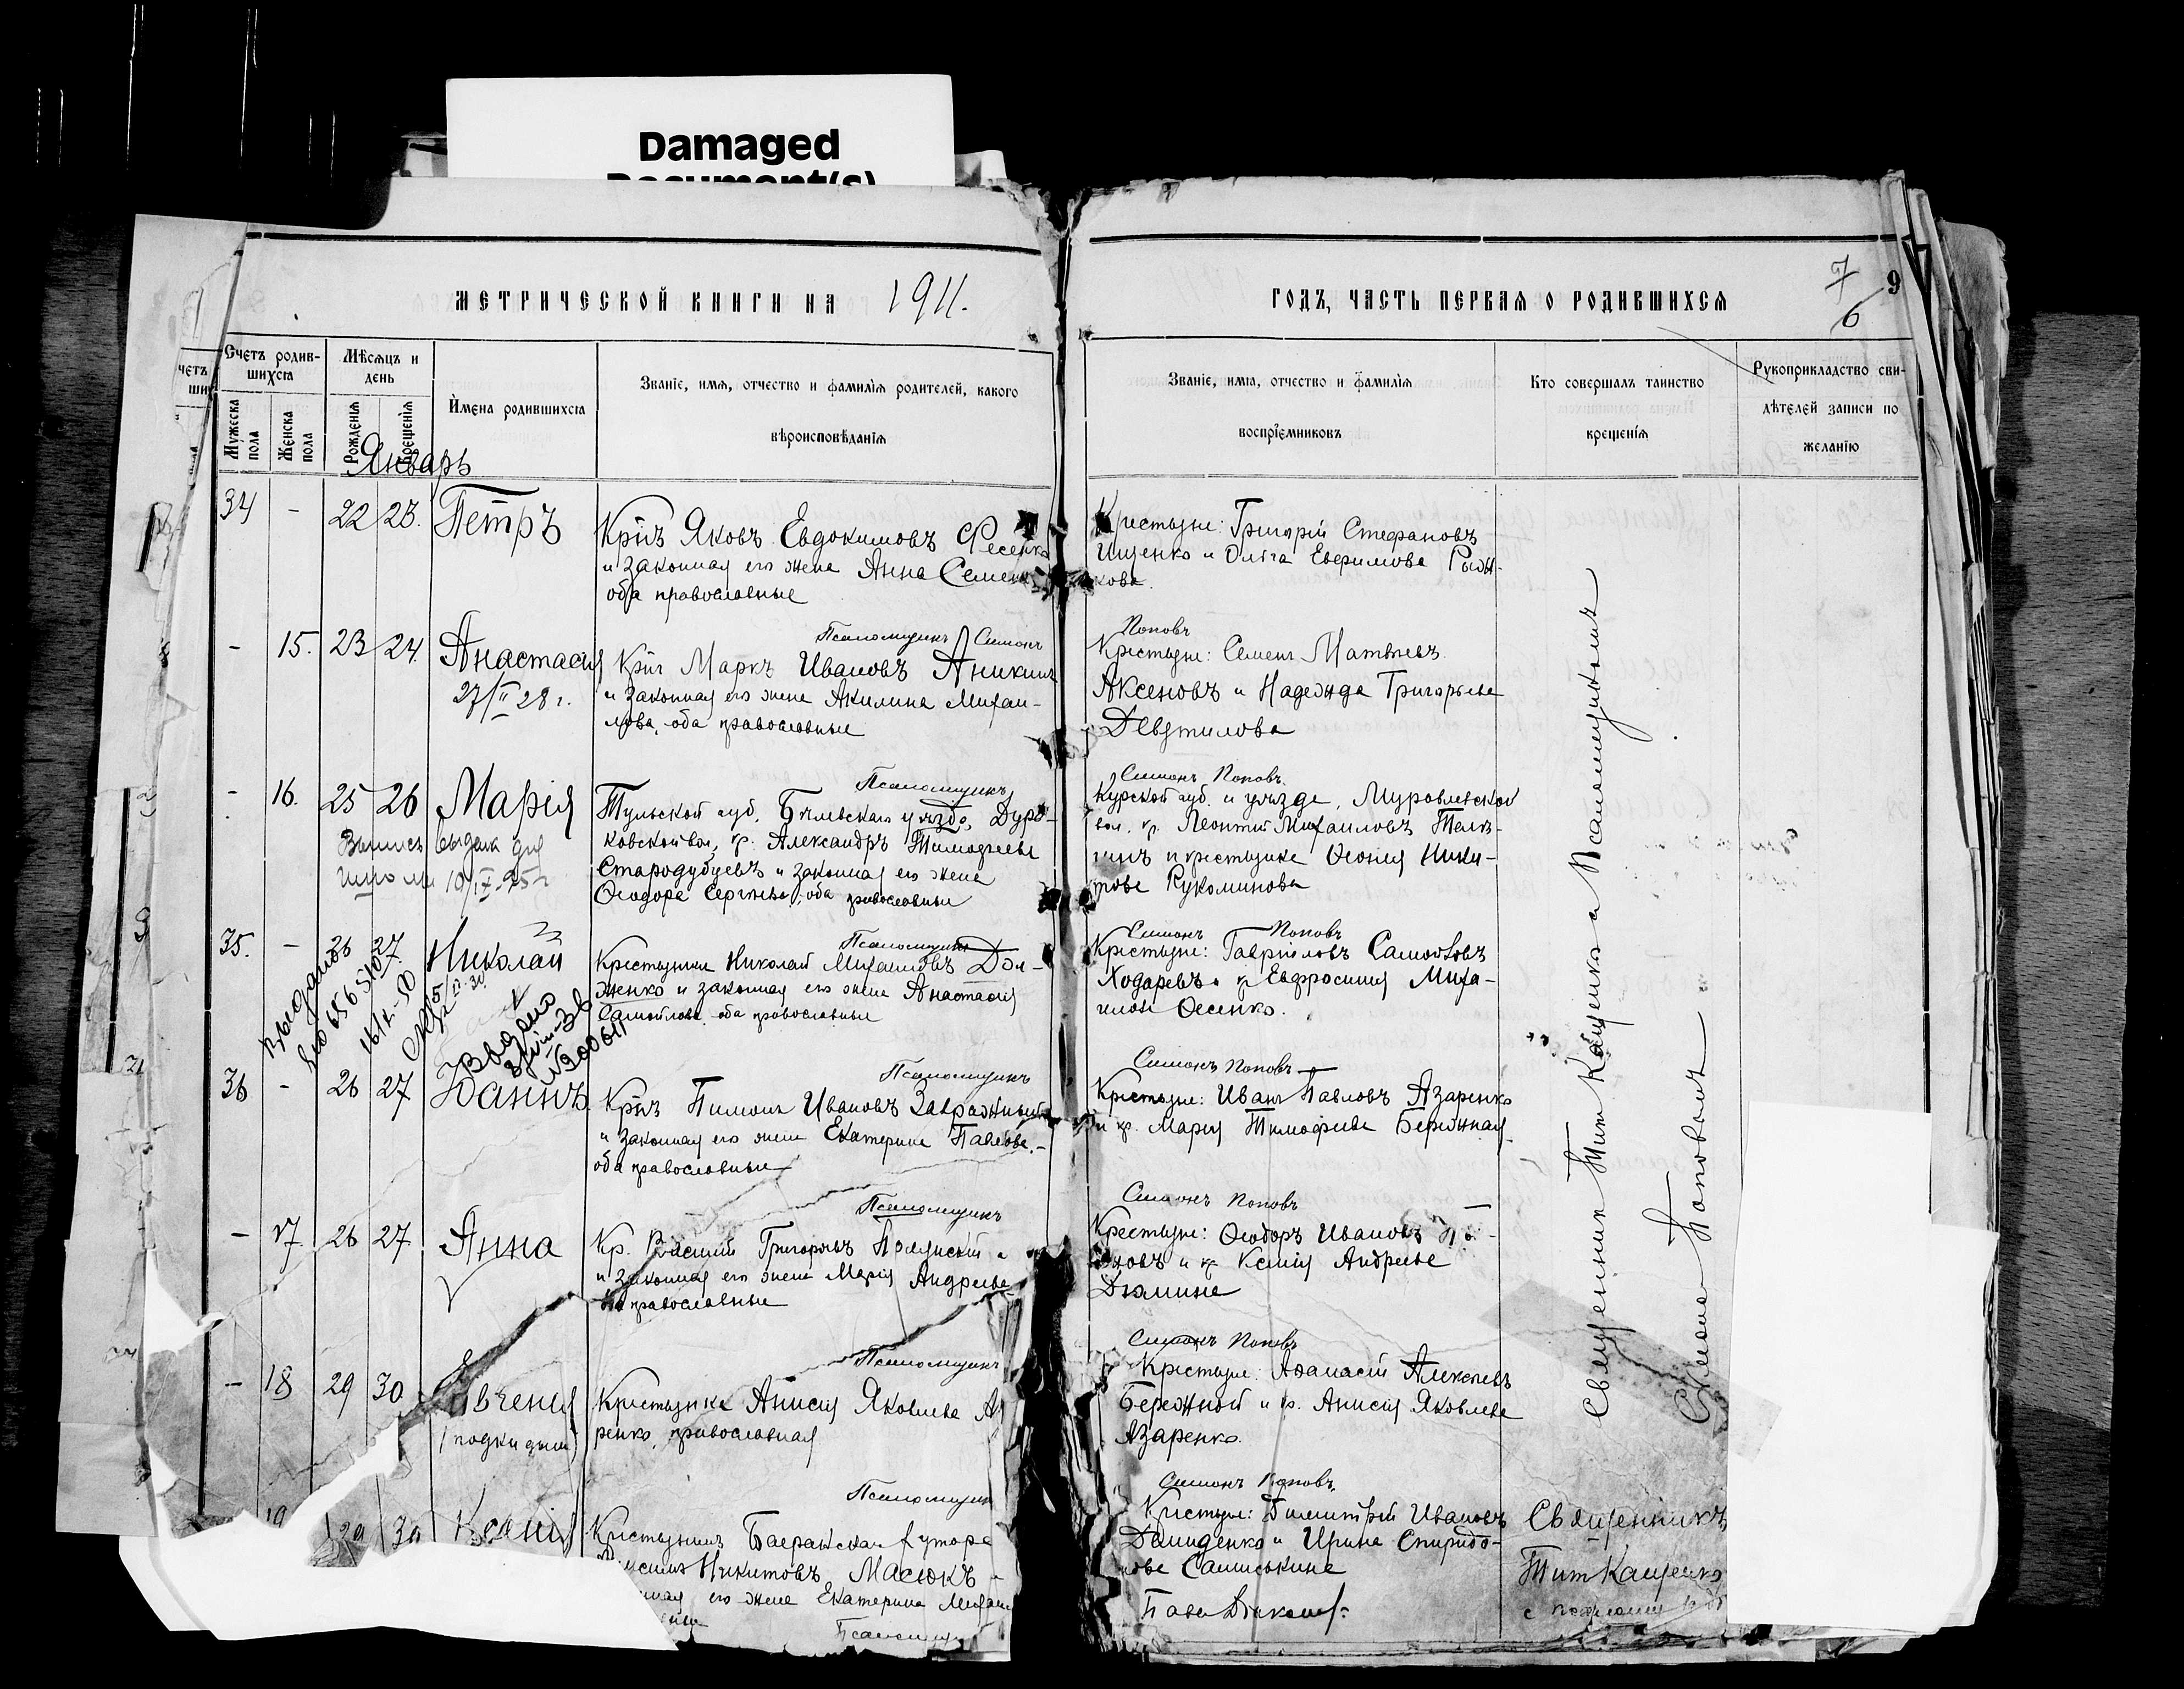 Damaged
Document(s)
МЕТРИЧЕСКОЙ КНИГИ НА 1911.
Счетъ родив-
шихся
Мужеска пола
Женска пола
Мѣсяцъ и
день
Рожденія
Крещенія
Имена родившихся
Званіе, имя, отчество и фамилія родителей, какого
вѣроисповѣданія
Январь
34 - 22 23. Петръ
Кр-нъ Яковъ Евдокимовъ Фесенко
и законная его жена Анна Семен
оба православные
Псаломщикъ Симонъ
- 15. 23 24. Анастасія
27/II 28 г.
Кр-нъ Маркъ Ивановъ Аникинъ
и законная его жена Акилина Михаи-
лова, оба православные
Псаломщикъ
- 16. 25 26 Марія
Выпись выдана для
школы 19/IX-25 г
Тульской губ. Бѣлевскаго уѣзда, Дуро-
ковской вол, кр. Александръ Тимофеевъ
Стародубцевъ и законная его жена
Ѳеодора Сергѣева, оба православные
Псаломщикъ
35. - 26 27. Николай
Крестьянинъ Николай Михаиловъ Дол-
женко и законная его жена Анастасія
Самойлова оба православные
Псаломщикъ
36 - 26 27 Іоаннъ
Кр-нъ Пимонъ Ивановъ Завражный
и законная его жена Екатерина Павлова.-
оба православные
Псаломщикъ
- 17. 26 27 Анна
Кр. Василій Григорьевъ
и законная его жена Марія Андреева
оба православные
Псаломщикъ
- 18 29 30. Евгенія
(подкидыш)
Крестьянка Анисія Яковлева Аз
ренко, православная
Псаломщик
19 29 30 Ксенія
Крестьянинъ хутора
Никитовъ Масюкъ
его жена Екатерина Михаи
Псаломщи
ГОДЪ, ЧАСТЬ ПЕРВАЯ О РОДИВШИХСЯ
7
6
9
Званіе, имя, отчество и фамилія
воспріемниковъ
Кто совершалъ таинство
крещенія
Рукоприкладство сви-
дѣтелей записи по
желанію
Крестьяне: Григорій Стефановъ
Ищенко и Ольга Евфимова Рыж-
кова.
Поповъ
Крестьяне: Семенъ Матвѣевъ
Аксеновъ и Надежда Григорьева
Девятилова
Симонъ Поповъ.
Курской губ. и уѣзда, Муравлевской
вол. кр. Леонтій Михаиловъ Теля-
гинъ и крестьянка Ѳеонія Ники-
това Рукоминова
Симонъ Поповъ
Крестьяне: Гавріиловъ Самойловъ
Ходаревъ и кр Евфросинія Миха-
илова Ѳесенко.
Симонъ Поповъ
Крестьяне: Иванъ Павловъ Азаренко
и кр. Марія Тимофеева Бережная
Симонъ Поповъ
Крестьяне: Ѳеодоръ Ивановъ
и кр Ксенія Андреева
Дюмина
Симонъ Поповъ
Крестьяне: Аѳанасій Алексѣевъ
Бережной и кр. Анисія Яковлева
Азаренко.
Симонъ Поповъ.
Крестьяне: Димитрій Ивановъ
Демиденко и Ирина Спиридо-
нова Самиськина
Священникъ Титъ Кащенко а Псаломщикомъ
Симономъ Поповымъ
Священникъ
Титъ Кащенко